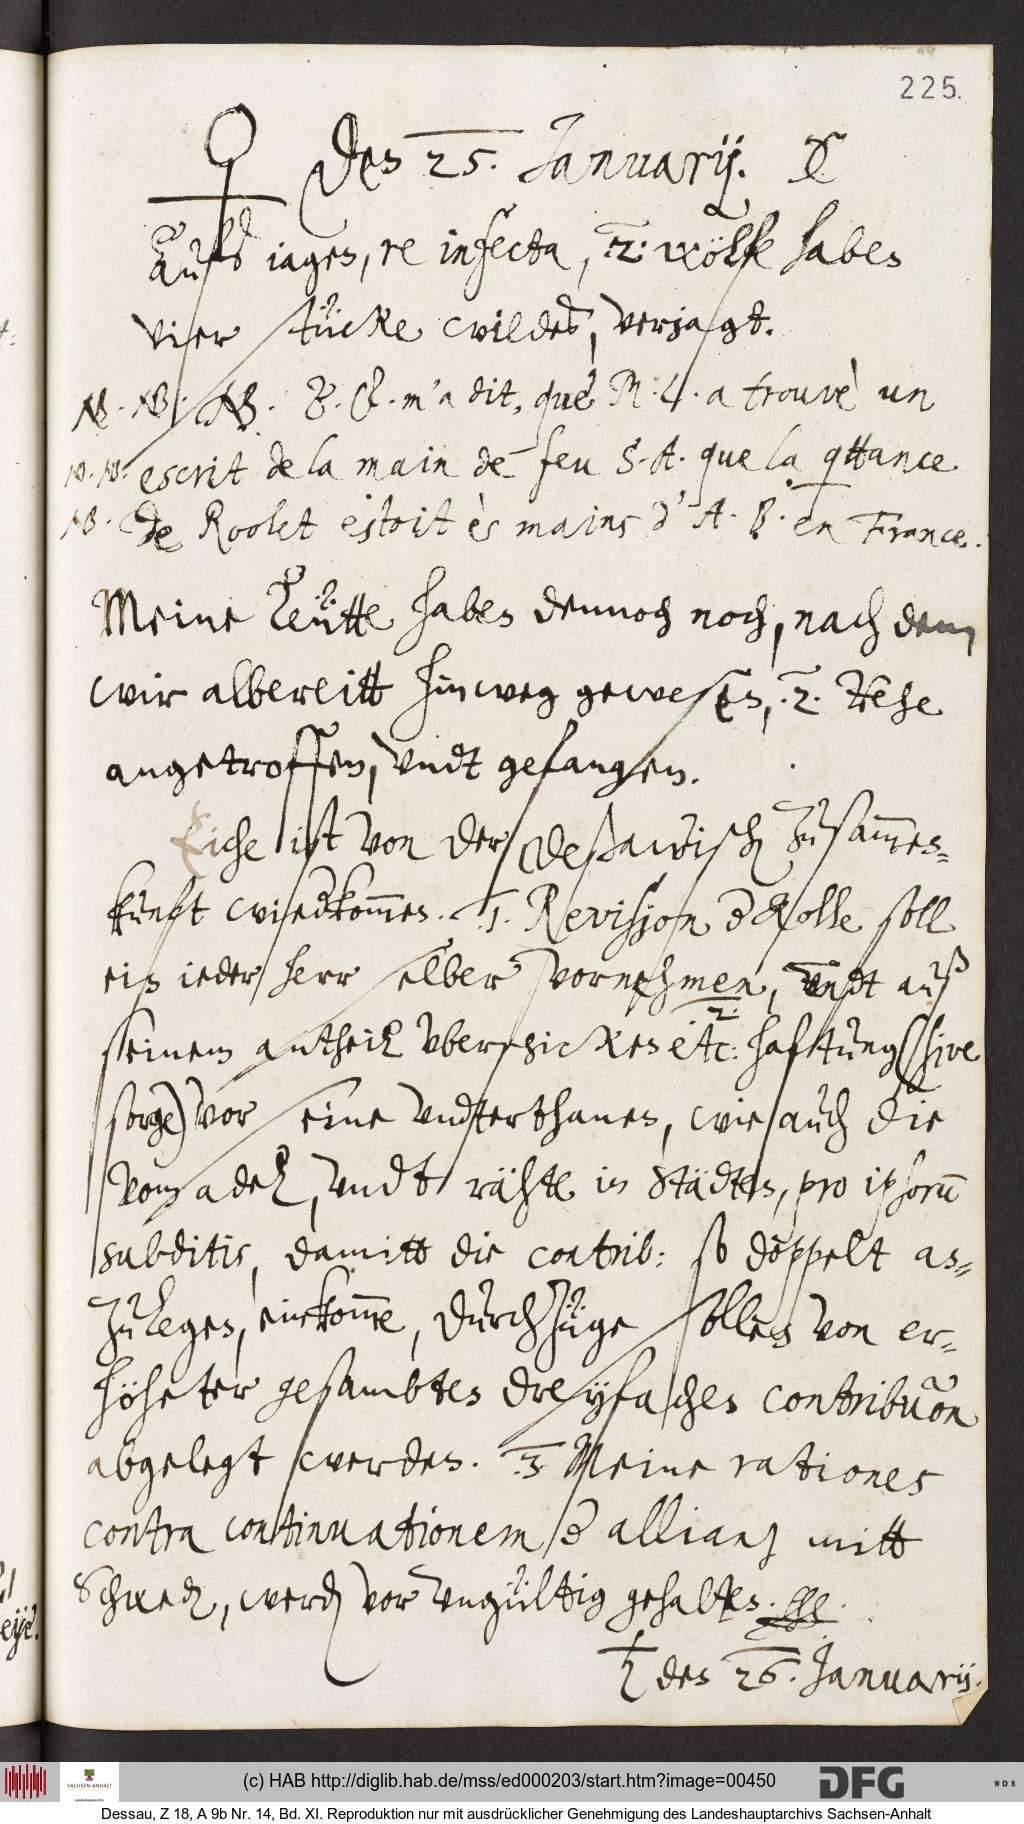 225.
♀ den 25. Januarij. ☾
Aufs iagen, re infecta, 2: wölfe haben
vier stücke wildes, verjagt.
NB. NB. NB. T. C. m'a dit, que M. L. a trouvè un
NB. NB. escrit de la main de feu S. A. que la qttance
NB. de Roolet estoit ès mains d' A. B. en France.
Meine leütte haben dennoch noch, nach dem
wir albereitt hinweg gewesen, 2. Rehe
angetroffen, vndt gefangen.
Eiche ist von der Deßawisch Zusam̄en=
kunft wiedkom̄en. 1. Revision d Rolle soll
ein ieder herr selber vornehmen, vndt auß
seinem antheil vberschicken etc: 2. haftung (sive
sorge) vor seine vndterthanen, wie auch die
vom adel, vndt rähte in Städten, pro ipsorū
subditis, damitt die contrib: so döppelt an=
zulegen, einkom̄e, durchzüge sollen von er=
höheter gesambten dreyfachen contribuõn
abgelegt werden. 3. Meine rationes
contra continuationem d allianz mitt
Schwed, werd vor vngültig gehalten.
♄ den 26. Januarij.
(c) HAB http://diglib.hab.de/mss/ed000203/start.htm?image=00450
SACHSEN-ANHALT
DFG
WDB
Dessau, Z 18, A 9b Nr. 14, Bd. XI. Reproduktion nur mit ausdrücklicher Genehmigung des Landeshauptarchivs Sachsen-Anhalt